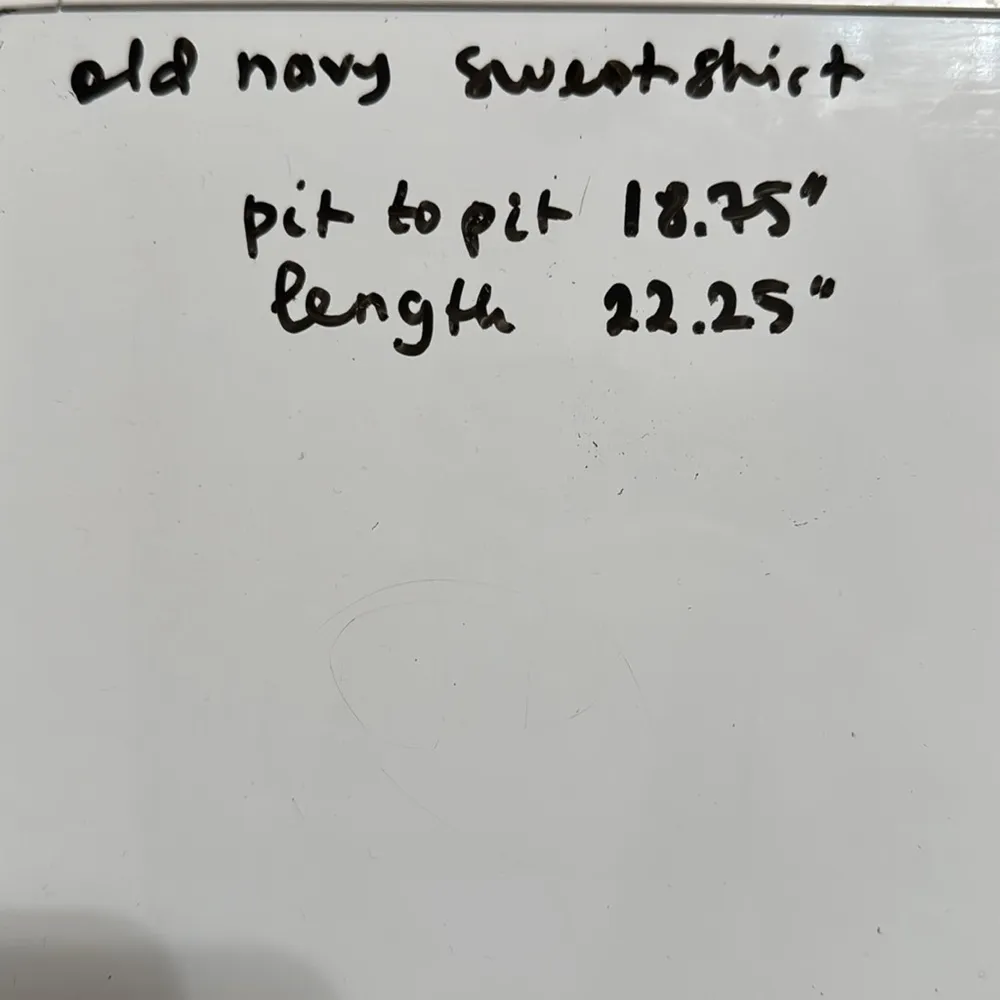 old navy sweatshirt
pit to pit 18.75"
length 22.25"